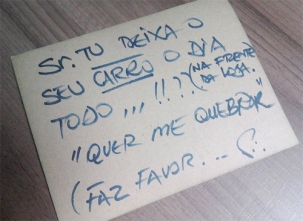 Sr. TU DEIXA O
SEU CARRO O DIA
TODO ,,, !!.?? (NA FRENTE
DA LOJA.
"QUER ME QUEBRAR"
(FAZ FAVOR... (?.